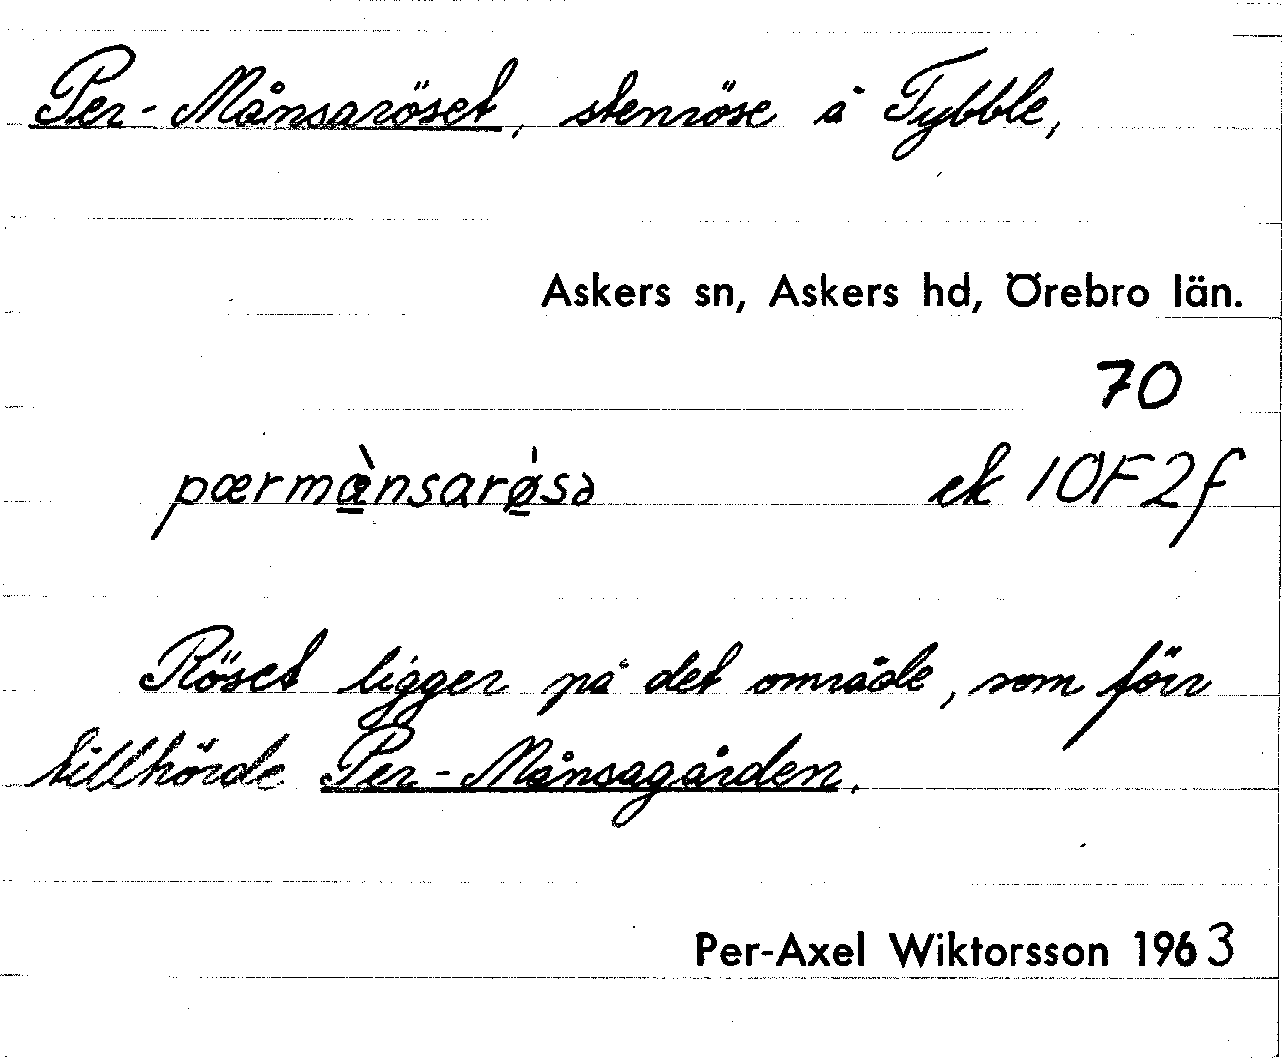 Per-Månsaröset, stenröse å Tybble,
Askers sn, Askers hd, Örebro län.
70
pærmæ̀nsarǿsə ek 10F2f
Röset ligger på det område, som förr
tillhörde Per-Månsagården.
Per-Axel Wiktorsson 1963